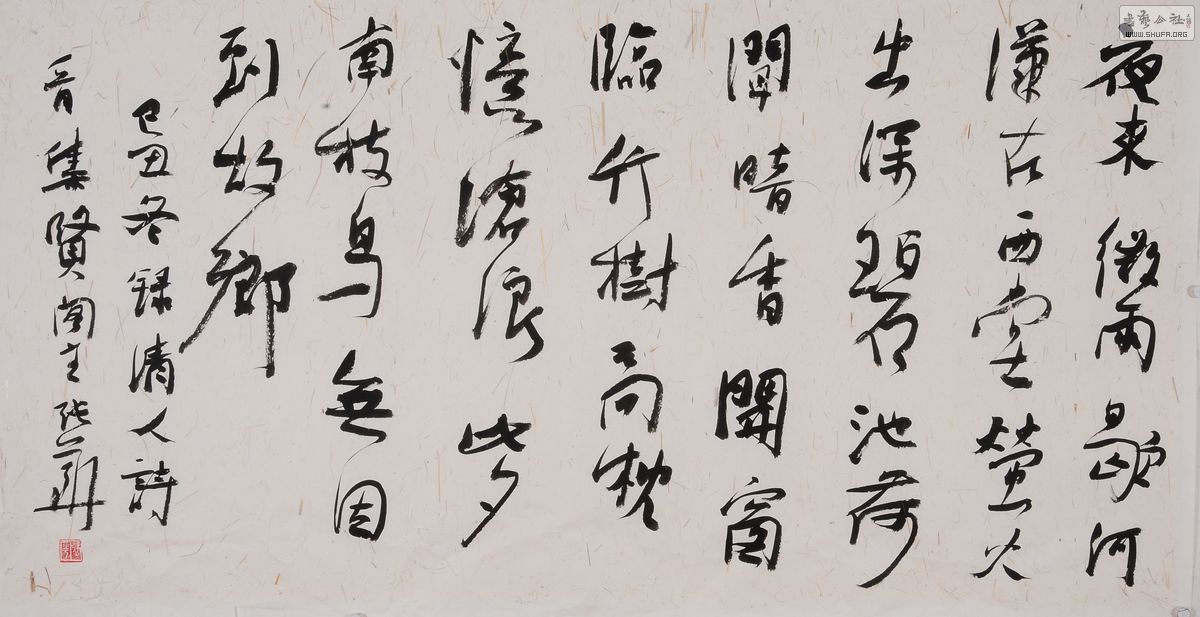 夜来微雨歇河
漢在西堂螢火
出深碧池荷
聞暗香開窗
臨竹樹高枕
憶滄浪此夕
南枝鳥無因
到故鄉
己丑冬錄清人詩
晉集賢閣主張
書藝公社
WWW.SHUFA.ORG